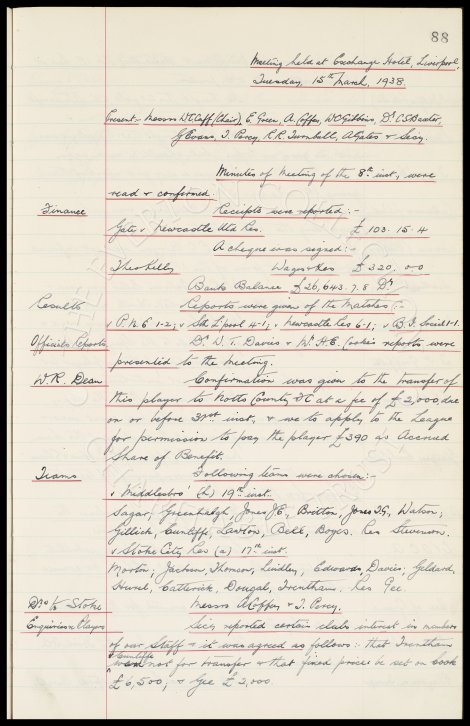 88
Meeting held at Exchange Hotel, Liverpool,
Tuesday, 15th March, 1938.
Present:- Messrs W.C. Cuff (Chair), E. Green, A. Coffey, W.C. Gibbins, Dr C.S. Baxter,
G. Evans, T. Percy, R.R. Turnbull, A. Gates & Secy.
Minutes of Meeting of the 8th inst, were
read & confirmed.
Finance Receipts were reported:-
Gate v. Newcastle Utd Res. £ 103. 15. 4
A cheque was signed:-
Theo Kelly Wages &es £ 320. 0. 0
Bank Balance £26,643. 7. 8 Dr
Results Reports were given of the Matches:-
v P.N.E 1-2; v Sth L'pool 4-1; v Newcastle Res 6-1; v B.I. Social 1-1.
Officials Reports Dr W.T. Davies & Mr H.E. Cooke's reports were
presented to the meeting.
W.R. Dean Confirmation was given to the transfer of
this player to Notts County F.C at a fee of £2,000, due
on or before 31st inst, & we to apply to the League
for permission to pay the player £390 as Accrued
Share of Benefit.
Teams Following teams were chosen:-
v Middlesbro' (h) 19th inst.
Sagar; Greenhalgh, Jones J.E; Britton, Jones T.G, Watson;
Gillick, Cunliffe, Lawton, Bell, Boyes. Res Stevenson.
v Stoke City Res (a) 17th inst.
Morton; Jackson, Thomson; Lindley, Edwards, Davies; Geldard,
Hurel, Catterick, Dougal, Trentham. Res Gee.
Drs to Stoke Messrs A. Coffey & T. Percy.
Enquiries re Players Secy, reported certain clubs interest in members
of our Staff & it was agreed as follows: that Trentham
& Cunliffe
not for transfer & that fixed prices be set on Cook
£6,500; & Gee £2,000.